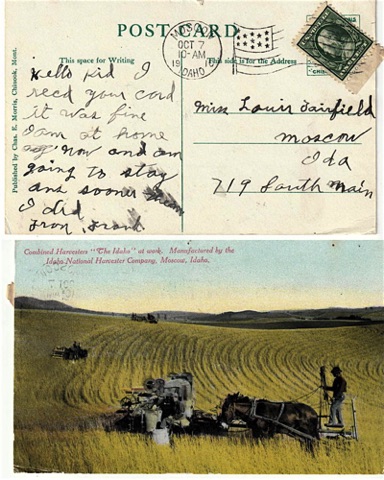 POST CARD
This space for Writing
This side is for the Address
OCT 7
10-AM
IDAHO
Published by Chas. E. Morris, Chinook, Mont.
Hello Kid I
recd your card
it was fine
I am at home
now and am
going to stay
ans sooner
I did
from Frank
Miss Louis Fairfield
Moscow
Ida
719 South Main
Combined Harvesters "The Idaho" at work. Manufactured by the
Idaho National Harvester Company, Moscow, Idaho.